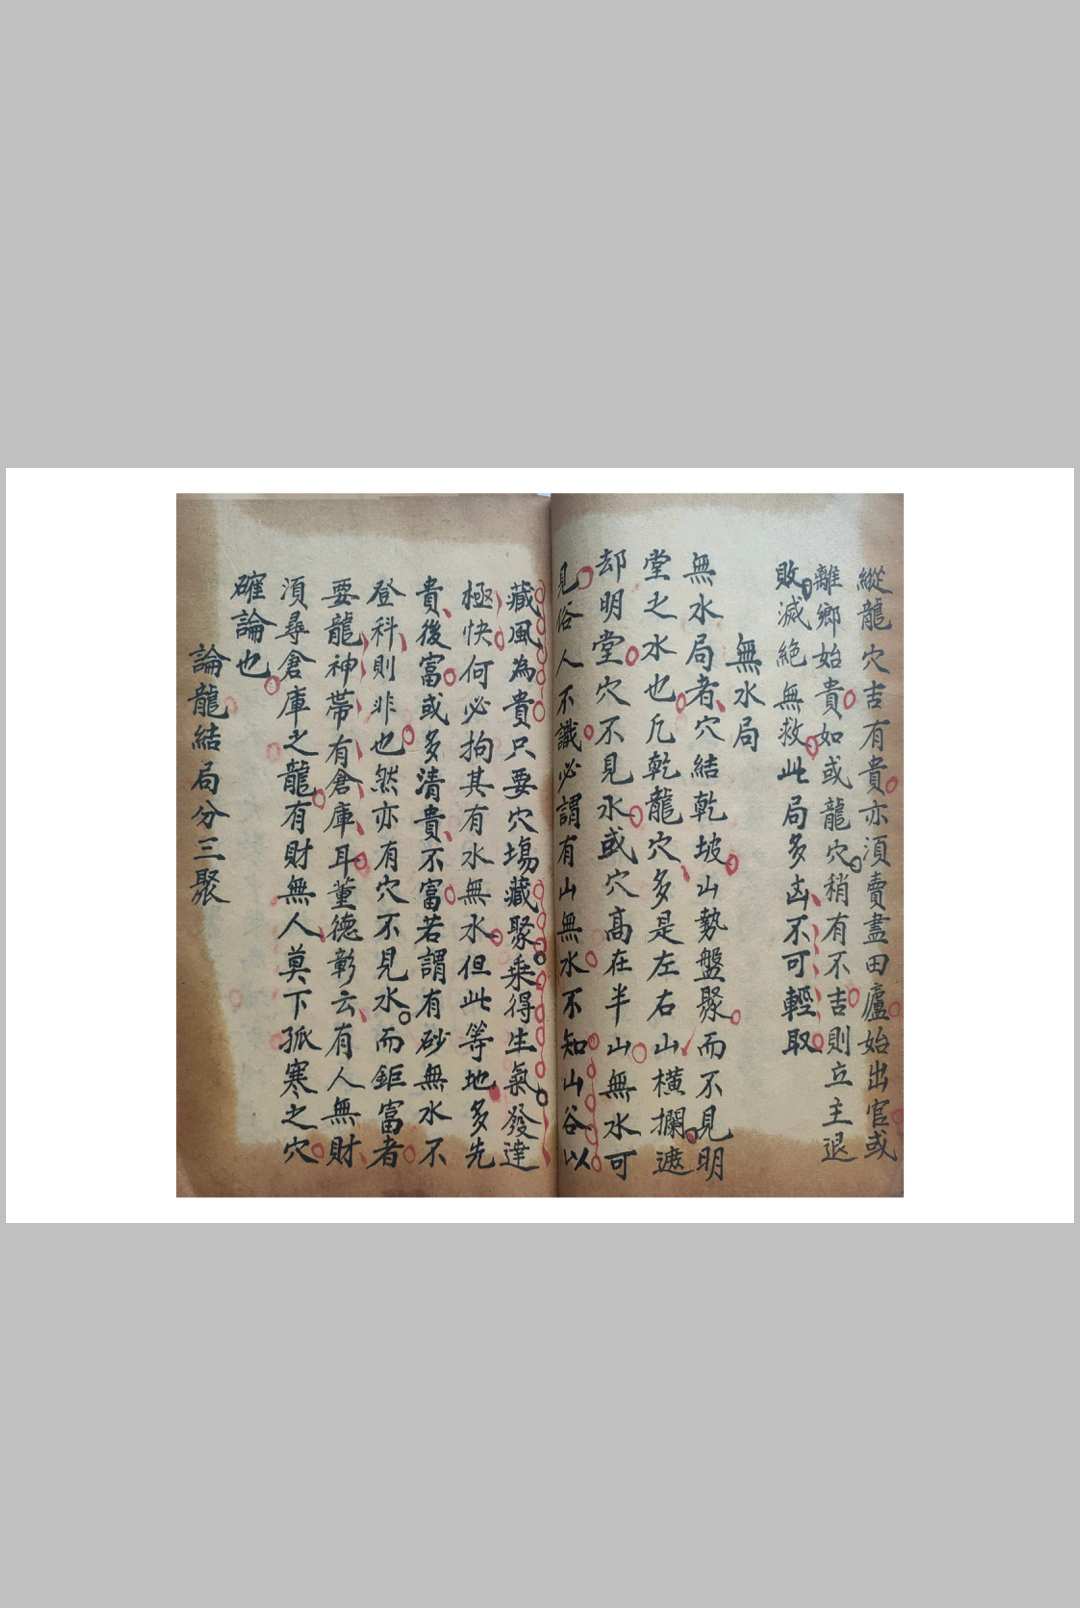 縱龍穴吉有貴亦須賣盡田廬始出官或
離鄉始貴如或龍穴稍有不吉則立主退
敗滅絕無救此局多凶不可輕取
無水局
無水局者穴結乾坡山勢盤聚而不見明
堂之水也凡乾龍穴多是左右山橫攔遮
却明堂穴不見水或穴高在半山無水可
見俗人不識必謂有山無水不知山谷以
藏風為貴只要穴塲藏聚乘得生氣發達
極快何必拘其有水無水但此等地多先
貴後富或多清貴不富若謂有砂無水不
登科則非也然亦有穴不見水而鉅富者
要龍神帶有倉庫耳董德彰云有人無財
須尋倉庫之龍有財無人莫下孤寒之穴
確論也
論龍結局分三聚